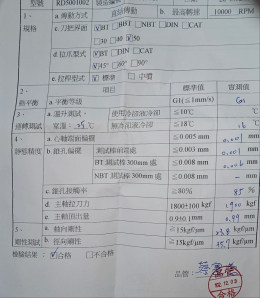 型號 RD5001002
1、 a.傳動方式 直結傳動 b.最高轉速 10000 RPM
規格 c.刀把界面 ☑BT □BHS □NBT □DIN □CAT
□30 □40 ☑50
d.拉爪型式 ☑BT □DIN □CAT
☑45° □60° □90°
e.拉桿型式 ☑標準 □中噴
2、 項目 標準值 實測值
動平衡 a.平衡等級 G1(≦1mm/s) G1
3、 a.溫升測試、 使用冷卻液冷卻 ≦10℃
運轉測試 室溫: ℃ 無冷卻液冷卻 ≦18℃ 16
4、 a.心軸端面偏擺 ≦0.005 mm 0.001 mm
靜態精度 b.錐孔偏擺 測試棒近端處 ≦0.003 mm 0.001 mm
BT測試棒300mm處 ≦0.008 mm mm
NBT測試棒300mm處 ≦0.008 mm — mm
c.錐孔接觸率 ≧80% 85 %
d.主軸拉刀力 1800±100 kgf 1900 kgf
e.主軸頂出量 mm 0.99 mm
5、 a.軸向剛性 ≧15kgf/μm kgf/μm
剛性測試 b.徑向剛性 ≧15kgf/μm kgf/μm
檢驗結果: ☑合格 □不合格
品管:
合格